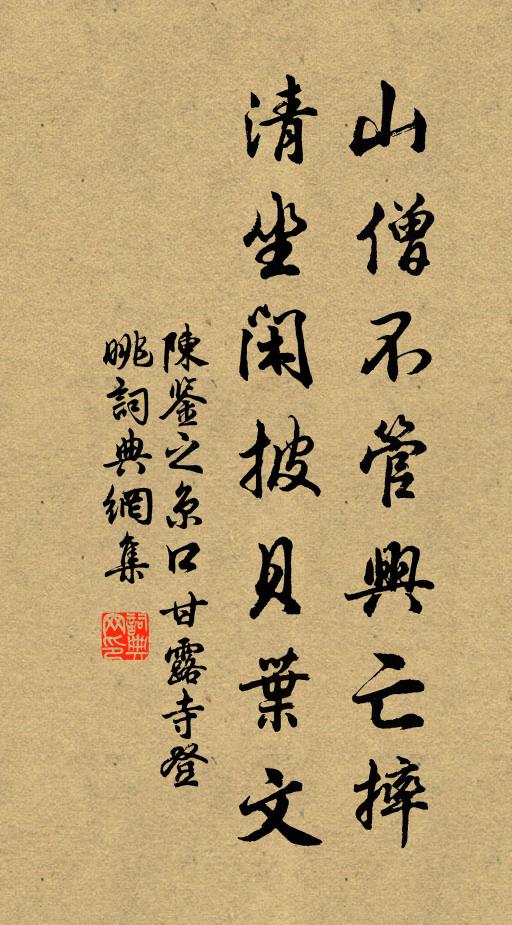 山僧不管興亡摔
清坐閑披貝葉文
陳鉴之京口甘露寺登
眺詞典網集
詞典网印